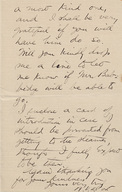 a most kind one,
and I shall be very
grateful if you will
have him do so.
Will you kindly drop
me a line to let
me know if Mr.
will be able to
go.
I enclose a card of
introduction in case I
should be prevented from
getting to the
though I fully expect
to be there.
Again thanking you
for your kindness
Yours very